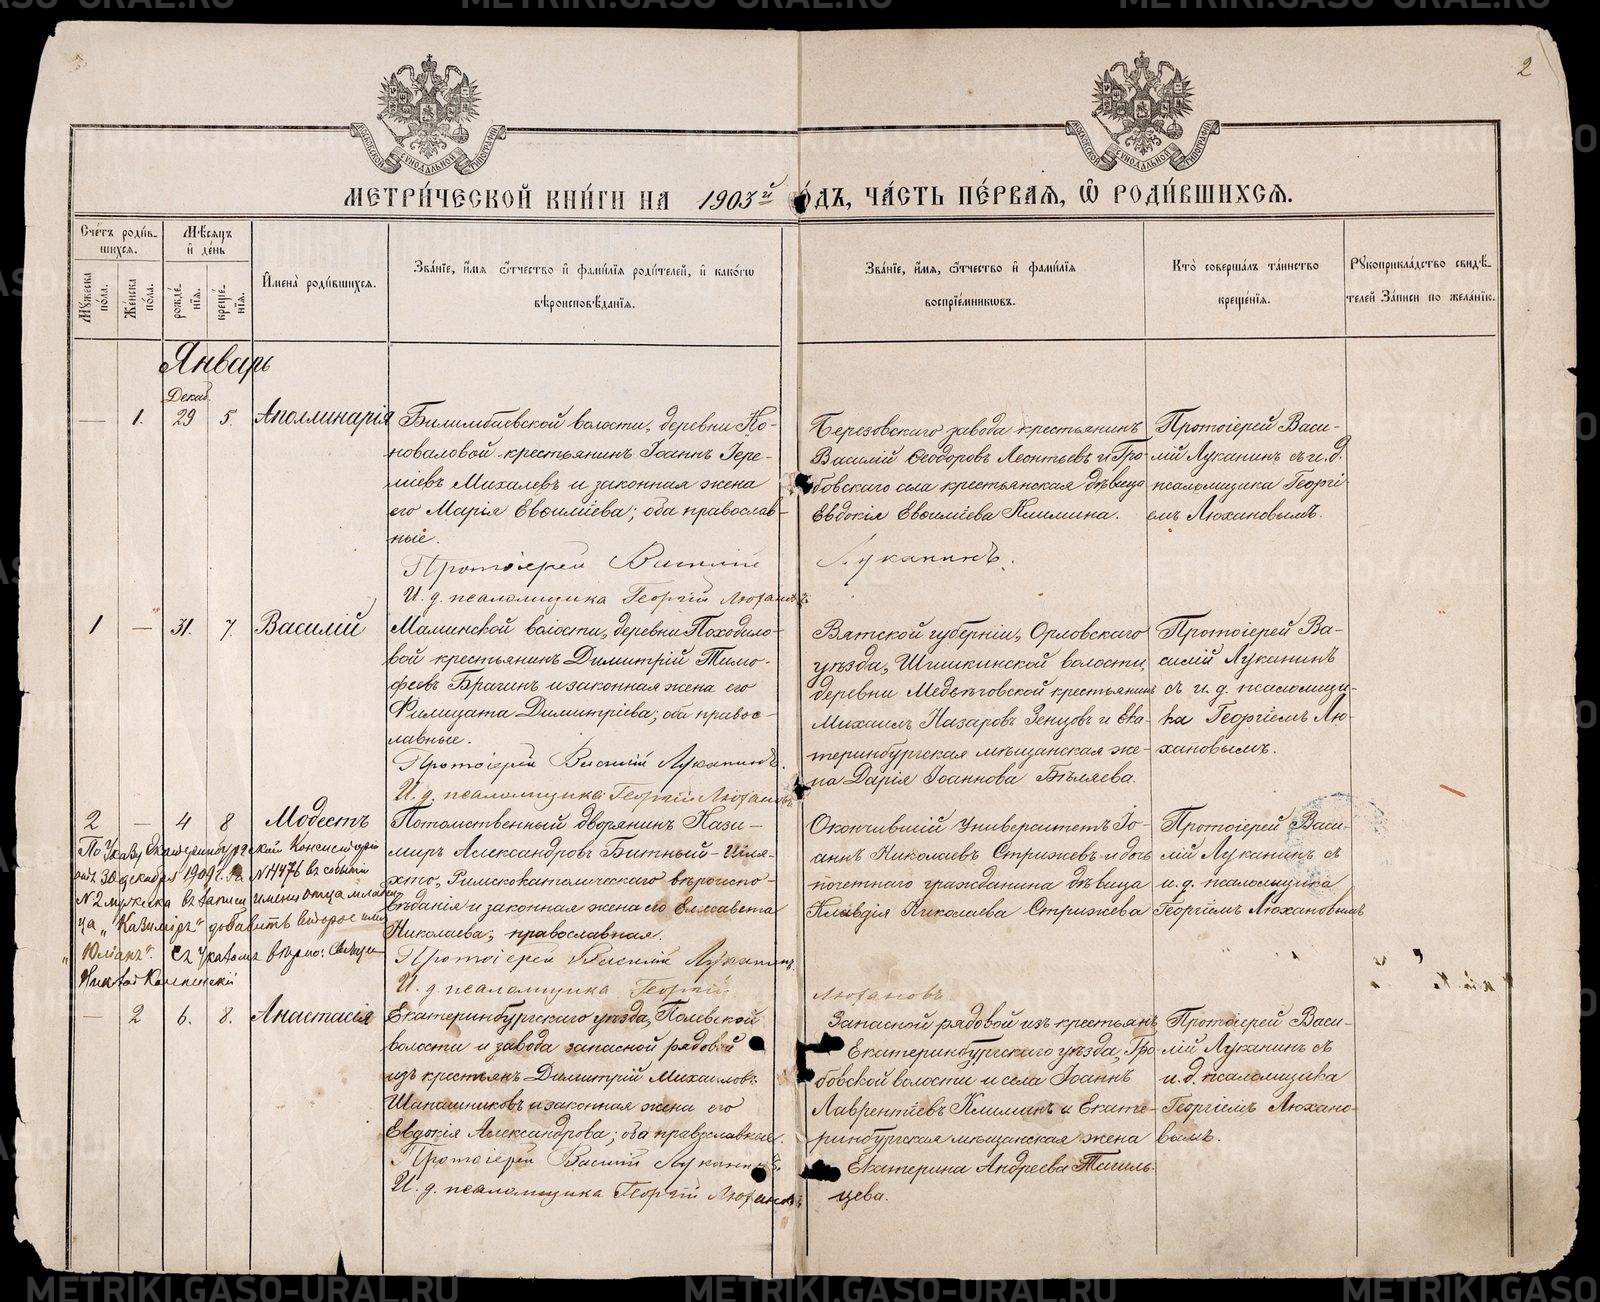 2
МОСКОВСКОЙ СѴНОДАЛЬНОЙ ТИПОГРАФІИ
МОСКОВСКОЙ СѴНОДАЛЬНОЙ ТИПОГРАФІИ
МЕТРИ́ЧЕСКОЙ КНИ́ГИ НА 1903й го́дъ, ЧА́СТЬ ПЕ́РВАѦ, Ѡ҆ РОДИ́ВШИХСѦ.
Сче́тъ роди́в-
шихсѧ.
Мѣ́сѧцъ
и҆ де́нь
Мꙋ́жеска
по́ла.
Же́нска
по́ла.
рожде́-
нїѧ.
креще́-
нїѧ.
И҆мена̀ роди́вшихсѧ.
Зва́нїе, и҆́мѧ ѻ҆́тчество и҆ фами́лїѧ роди́телей, и҆ како́гѡ
вѣроисповѣ́данїѧ.
Зва́нїе, и҆́мѧ, ѻ҆́тчество и҆ фами́лїѧ
воспрїе́мникѡвъ.
Кто̀ соверша́лъ та́инство
креще́нїѧ.
Рꙋкоприкла́дство свидѣ́-
телей За́писи по жела́нїю.
Январь
Декаб.
— 1. 29 5. Аполлинарія
Билимбаевской волости, деревни Ко-
новаловой крестьянинъ Іоаннъ Іере-
міевъ Михалевъ и законная жена
его Марія Евѳиміева; оба православ-
ные.
Протоіерей Василій
И. д. псаломщика Георгій Люхановъ
Березовскаго завода крестьянинъ
Василій Ѳеодоровъ Леонтьевъ и Гро-
бовскаго села крестьянская дѣвица
Евдокія Евѳиміева Климина.
Луканинъ.
Протоіерей Васи-
лій Луканинъ съ и. д.
псаломщика Георгі-
емъ Люхановымъ.
1 — 31. 7. Василій
Маминской волости, деревни Походило-
вой крестьянинъ Димитрій Тимо-
феевъ Брагинъ и законная жена его
Филицата Димитріева; оба право-
славные.
Протоіерей Василій Луканинъ.
И. д. псаломщика Георгій Люхановъ
Вятской губерніи, Орловскаго
уѣзда, Шишкинской волости,
деревни Медвѣговской крестьянинъ
Михаилъ Назаровъ Зенцовъ и Ека-
теринбургская мѣщанская же-
на Дарія Іоаннова Бѣляева.
Протоіерей Ва-
силій Луканинъ
съ и. д. псаломщи-
ка Георгіемъ Лю-
хановымъ.
2 — 4 8 Модестъ
По Указу Екатеринбургской Консисторіи
отъ 30 декабря 1909 г. за № 14476 въ событіи
№ 2 мужска въ записи имени отца младен-
ца „Казиміръ" добавить второе имя
„Юліанъ". Съ Указомъ вѣрно: Священ-
никъ
Потомственный дворянинъ Кази-
миръ Александровъ Битный-Шля-
хто, Римскокатолическаго вѣроиспо-
вѣданія и законная жена его Елисавета
Николаева, православная.
Протоіерей Василій Луканинъ.
И. д. псаломщика Георгій
Окончившій Университетъ Іо-
аннъ Николаевъ Стрижевъ и дочь
почетнаго гражданина дѣвица
Клавдія Николаева Стрижева
Люхановъ
Протоіерей Васи-
лій Луканинъ съ
и. д. псаломщика
Георгіемъ Люхановымъ
— 2 6. 8. Анастасія
Екатеринбургскаго уѣзда, Полевской
волости и завода запасной рядовой
изъ крестьянъ Димитрій Михаиловъ
Шапошниковъ и законная жена его
Евдокія Александрова; оба православные.
Протоіерей Василій Луканинъ.
И. д. псаломщика Георгій Люхановъ
Запасной рядовой изъ крестьянъ
Екатеринбургскаго уѣзда, Гро-
бовской волости и села Іоаннъ
Лаврентіевъ Климинъ и Екате-
ринбургская мѣщанская жена
Екатерина Андреева Тагиль-
цева.
Протоіерей Васи-
лій Луканинъ съ
и. д. псаломщика
Георгіемъ Люхано-
вымъ.
METRIKI.GASO-URAL.RU